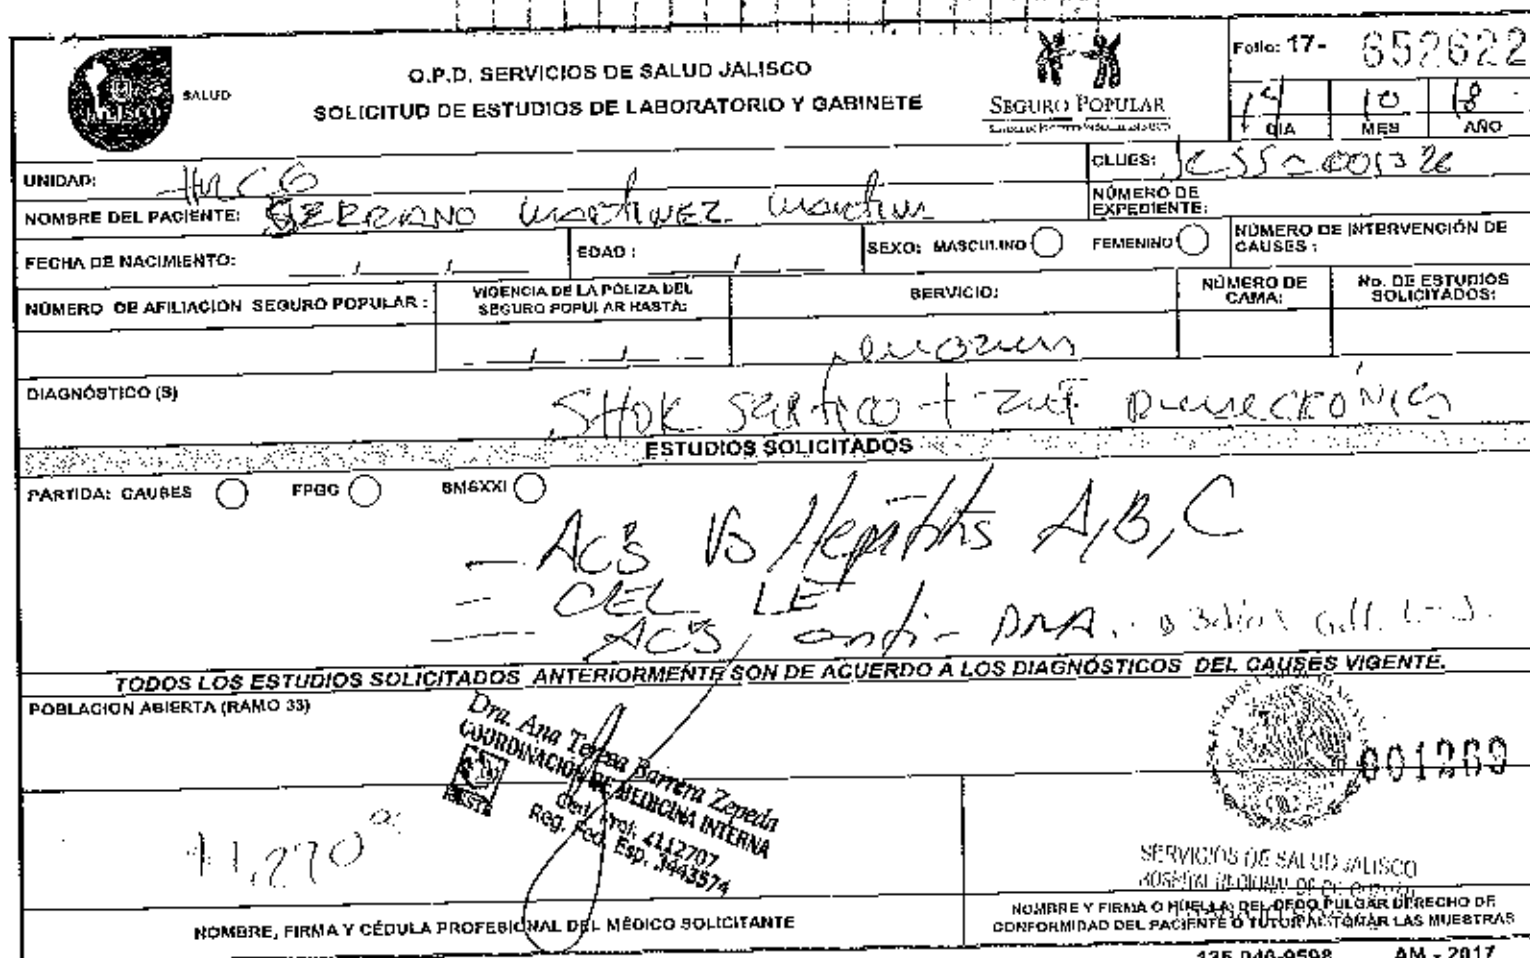 O.P.D. SERVICIOS DE SALUD JALISCO
SOLICITUD DE ESTUDIOS DE LABORATORIO Y GABINETE
JALISCO
SALUD
SEGURO POPULAR
Folio: 17- 652622
10 18
DIA MES AÑO
UNIDAD:
CLUES:
NOMBRE DEL PACIENTE: SERRANO MARTINEZ Martin
NÚMERO DE EXPEDIENTE:
FECHA DE NACIMIENTO: / /
EDAD: /
SEXO: MASCULINO FEMENINO
NÚMERO DE INTERVENCIÓN DE CAUSES :
NÚMERO DE AFILIACION SEGURO POPULAR :
VIGENCIA DE LA PÓLIZA DEL SEGURO POPULAR HASTA:
SERVICIO:
NÚMERO DE CAMA:
No. DE ESTUDIOS SOLICITADOS:
DIAGNÓSTICO (S)
SHOK SEPTICO +
ESTUDIOS SOLICITADOS
PARTIDA: CAUSES FPGC SMSXXI
- ACS VS Hepatitis A, B, C
- CEL LE
- ACS anti- DNA.
TODOS LOS ESTUDIOS SOLICITADOS ANTERIORMENTE SON DE ACUERDO A LOS DIAGNÓSTICOS DEL CAUSES VIGENTE.
POBLACION ABIERTA (RAMO 33)
Dra. Ana Teresa Barrera Zepeda
COORDINACIÓN DE MEDICINA INTERNA
Ced. Prof. 2112707
Reg. Fed. Esp. 3443574
001269
1,270
SERVICIOS DE SALUD JALISCO
HOSPITAL REGIONAL DE
NOMBRE, FIRMA Y CÉDULA PROFESIONAL DEL MÉDICO SOLICITANTE
NOMBRE Y FIRMA O HUELLA DEL DEDO PULGAR DERECHO DE
CONFORMIDAD DEL PACIENTE O TUTOR AL TOMAR LAS MUESTRAS
AM - 2017